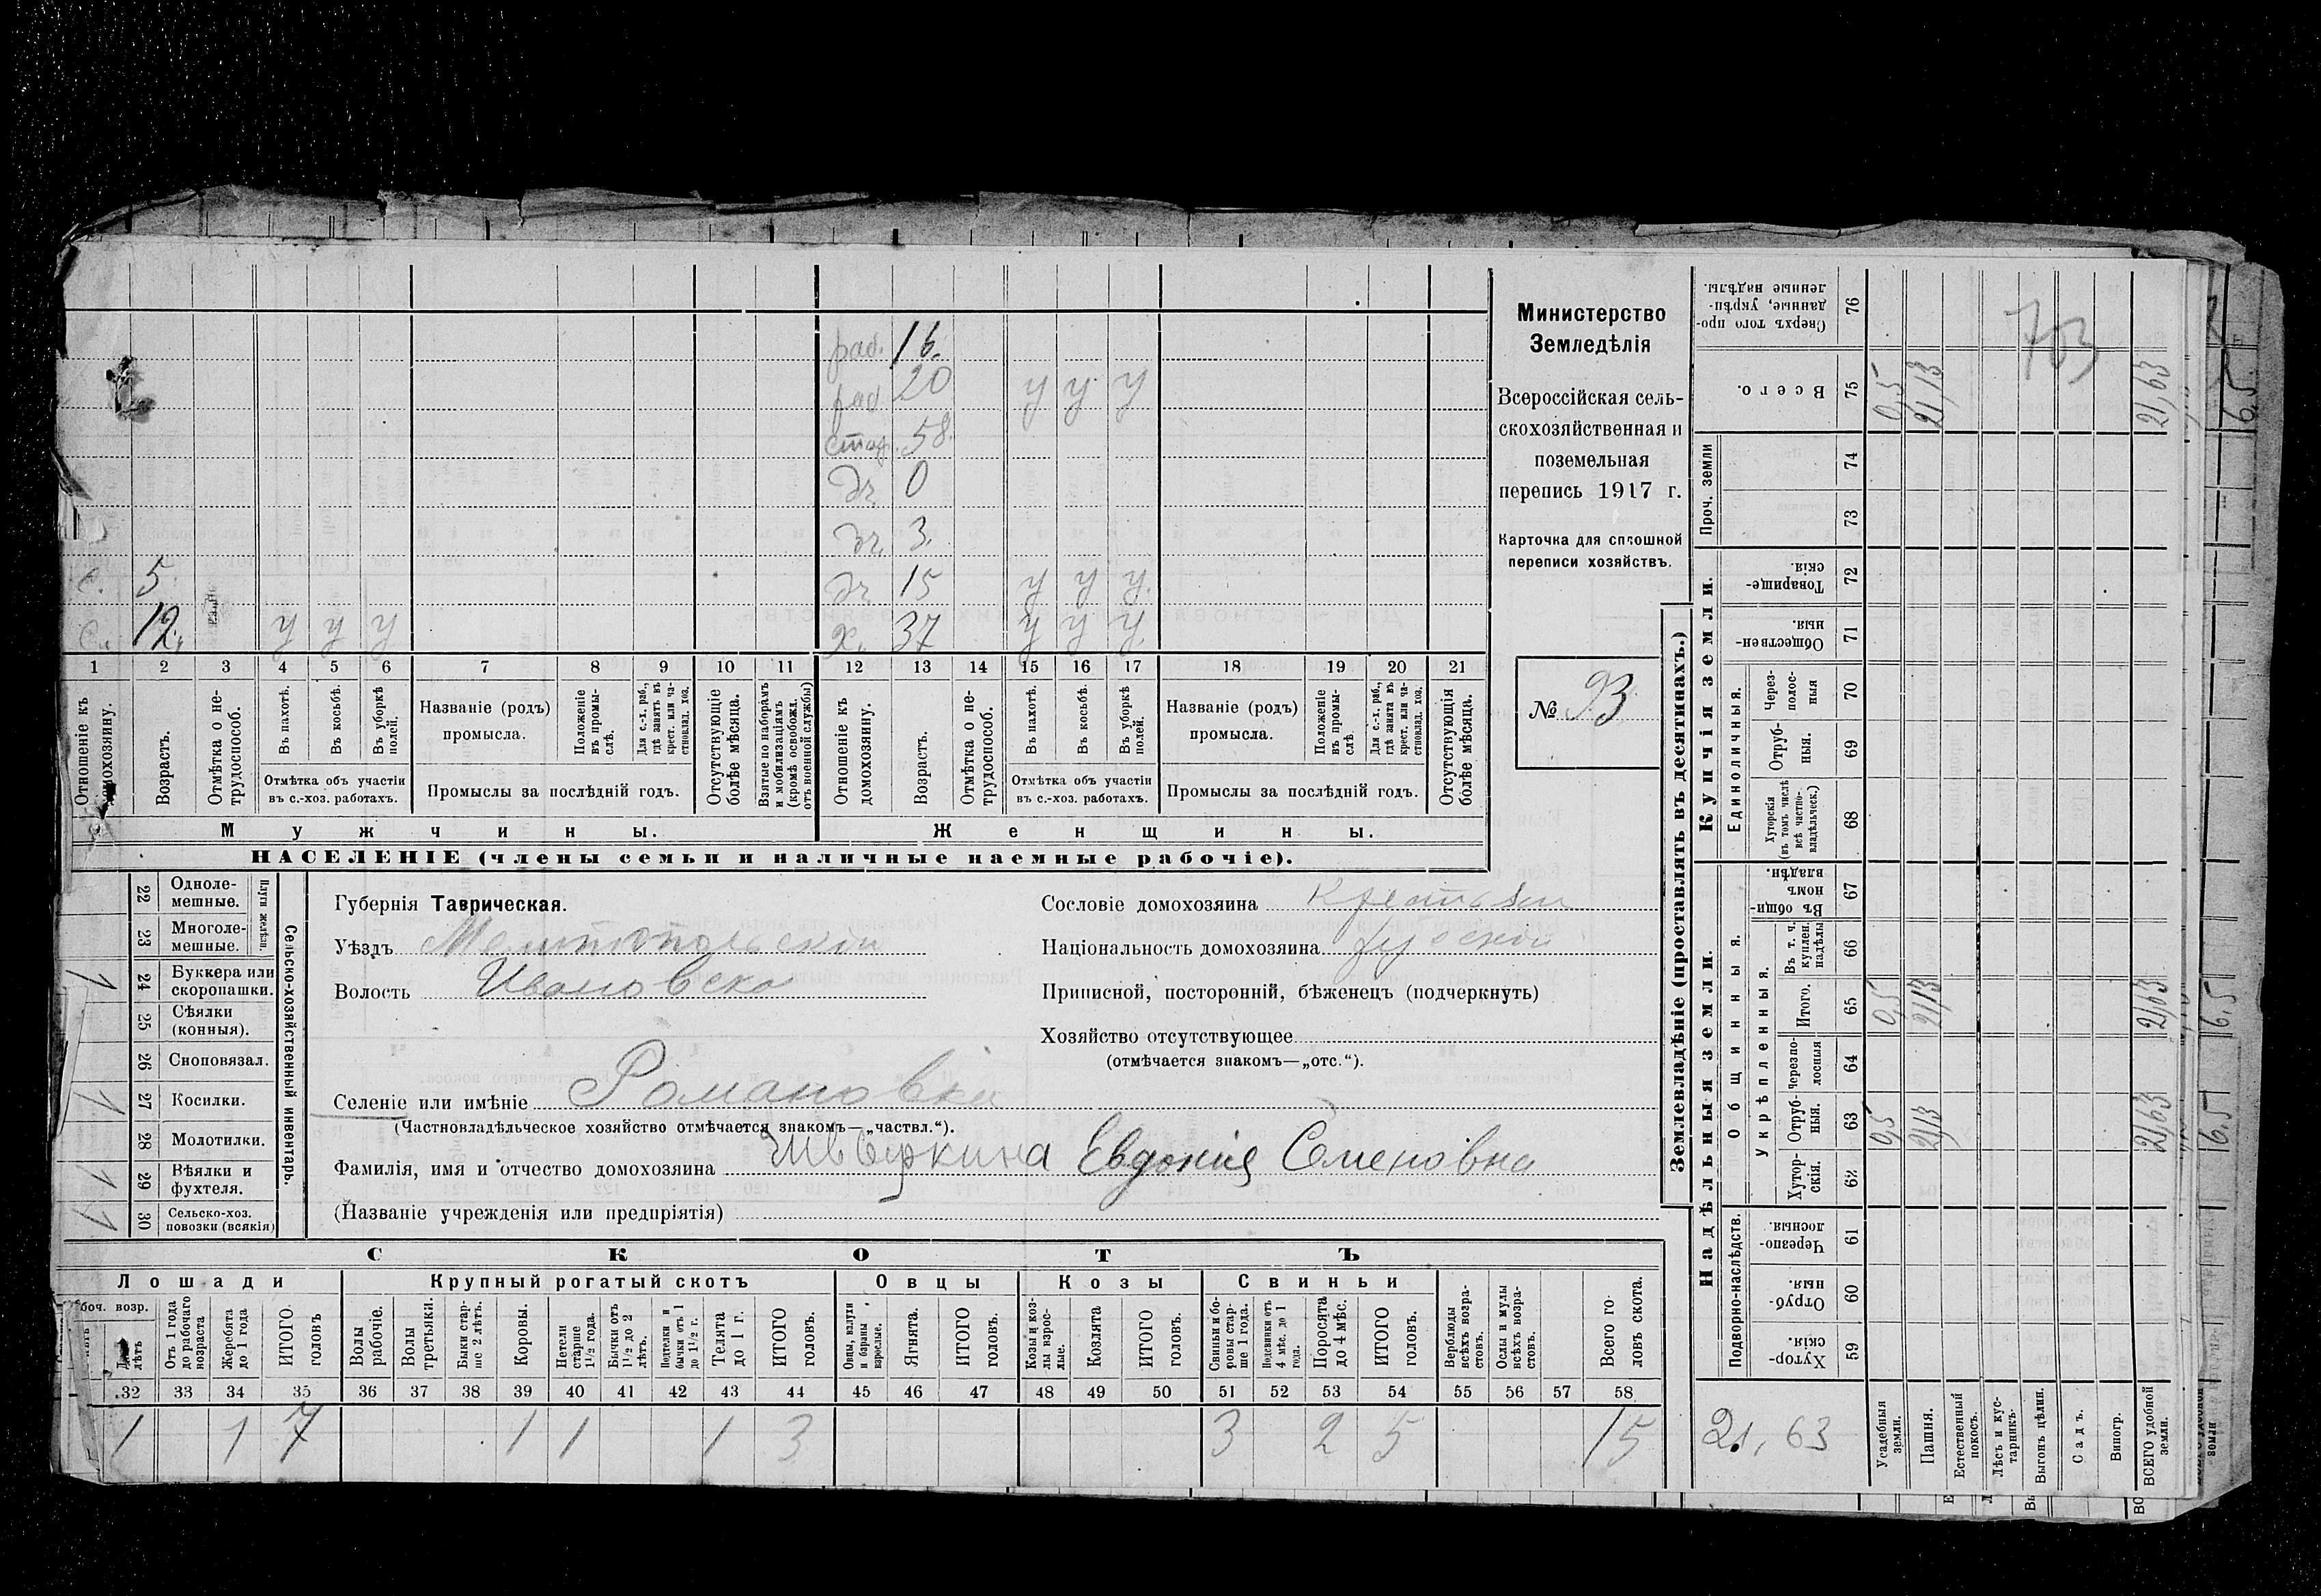 раб. 16.
раб 20 у у у
стар. 58.
дч. 0
дч. 3.
с. 5 дч 15 у у у.
с. 12. у у у х. 37 у у у.
1 2 3 4 5 6 7 8 9 10 11 12 13 14 15 16 17 18 19 20 21
Отношеніе къ домохозяину.
Возрастъ.
Отмѣтка о нетрудоспособ.
Въ пахотѣ.
Въ косьбѣ.
Въ уборкѣ полей.
Отмѣтка объ участіи въ с.-хоз. работахъ.
Названіе (родъ) промысла.
Положеніе въ промыслѣ.
Для с.-х. раб., гдѣ занятъ въ крест. или частновлад. хоз.
Промыслы за послѣдній годъ.
Отсутствующіе болѣе мѣсяца.
Взятые по наборамъ и мобилизаціямъ (кромѣ освобожд. отъ военной службы)
Отношеніе къ домохозяину.
Возрастъ.
Отмѣтка о нетрудоспособ.
Въ пахотѣ.
Въ косьбѣ.
Въ уборкѣ полей.
Отмѣтка объ участіи въ с.-хоз. работахъ.
Названіе (родъ) промысла.
Положеніе въ промыслѣ.
Для с.-х. раб., гдѣ занята въ крест. или частновлад. хоз.
Промыслы за послѣдній годъ.
Отсутствующія болѣе мѣсяца.
Мужчины. Женщины.
НАСЕЛЕНІЕ (члены семьи и наличные наемные рабочіе).
Министерство
Земледѣлія
Всероссійская сель-
скохозяйственная и
поземельная
перепись 1917 г.
Карточка для сплошной
переписи хозяйствъ.
№ 93
Сельско-хозяйственный инвентарь.
Плуги желѣзн.
22 Однолемешные.
23 Многолемешные.
24 Буккера или скоропашки. 1
25 Сѣялки (конныя).
26 Сноповязал.
27 Косилки. 1
28 Молотилки.
29 Вѣялки и фухтеля. 1
30 Сельско-хоз. повозки (всякія) 1
Губернія Таврическая.
Уѣздъ Мелитопольскій
Волость Ивановска
Сословіе домохозяина крестьян
Національность домохозяина русской
Приписной, посторонній, бѣженецъ (подчеркнуть)
Хозяйство отсутствующее
(отмѣчается знакомъ—„отс.“).
Селеніе или имѣніе Романовка
(Частновладѣльческое хозяйство отмѣчается знакомъ—„частвл.“).
Фамилія, имя и отчество домохозяина Швыркина Евдокия Семеновна
(Названіе учрежденія или предпріятія)
СКОТЪ
Лошади Крупный рогатый скотъ Овцы Козы Свиньи
боч. возр.
лѣтъ
Отъ 1 года до рабочаго возраста
Жеребята до 1 года
ИТОГО головъ
Волы рабочіе.
Волы третьяки.
Быки старше 2 лѣтъ.
Коровы.
Нетели старше 1½ года.
Бычки отъ 1½ до 2 лѣтъ.
Подтелки и бычки отъ 1 до 1½ г.
Телята до 1 г.
ИТОГО головъ.
Овцы, валухи и бараны взрослые.
Ягнята.
ИТОГО головъ.
Козы и козлы взрослые.
Козлята
ИТОГО головъ.
Свиньи и боровы старше 1 года.
Подсвинки отъ 4 мѣс. до 1 года.
Поросята до 4 мѣс.
ИТОГО головъ.
Верблюды всѣхъ возрастовъ.
Ослы и мулы всѣхъ возрастовъ.
Всего головъ скота.
32 33 34 35 36 37 38 39 40 41 42 43 44 45 46 47 48 49 50 51 52 53 54 55 56 57 58
1 1 7 1 1 1 3 3 2 5 15
Землевладѣніе (проставлять въ десятинахъ.)
Купчія земли.
Надѣльныя земли.
Сверхъ того проданные, укрѣпленные надѣлы. 76
703
Всего. 75 0,5 21,13 21,63
Проч. земли 74
73
Товарищескія. 72
Общественныя. 71
Единоличныя.
Черезполосныя 70
Отрубныя. 69
Хуторскія (въ томъ числѣ всѣ частновладѣльческ.) 68
Общинныя.
Въ общинномъ владѣн. 67
Укрѣпленныя.
Въ т. ч. куплен. надѣлы 66
Итого. 65 0,5 21,13 21,63
Черезполосныя 64
Отрубныя. 63 0,5 21,13 21,63
Хуторскія. 62
Подворно-наслѣдств.
Черезполосныя. 61
Отрубныя. 60
Хуторскія. 59
21,63
Усадебныя земли.
Пашня.
Естественный покосъ.
Лѣсъ и кустарникъ.
Выгонъ цѣлин.
Садъ.
Виногр.
ВСЕГО удобной земли.
6,5
6,5
6,5